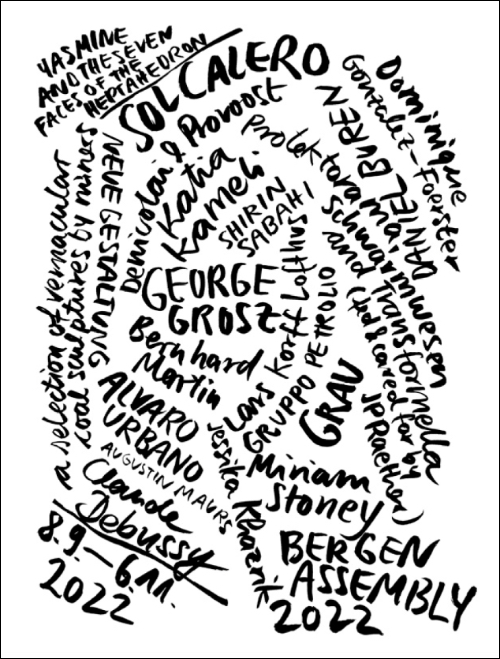 YASMINE
AND THE SEVEN
FACES OF THE
HEPTAHEDRON
SOL CALERO
Dominique
Gonzalez-Foerster
DANIEL BUREN
Denicolai & Provoost
Katia
Kameli
Protektorama
Schwarmwesen
and Transformella
(fed & cared for by
JP Raether)
SHIRIN
SABAHI
NEUE GESTALTUNG
a selection of vernacular
coal sculptures by miners
GEORGE
GROSZ
Lars Korff Lofthus
GRUPPO PETROLIO
GRAU
Bernhard
Martin
ALVARO
URBANO
AUGUSTIN MAURS
Jessika Khazrik
Miriam
Stoney
Claude
Debussy
8.9.–6.11.
2022
BERGEN
ASSEMBLY
2022